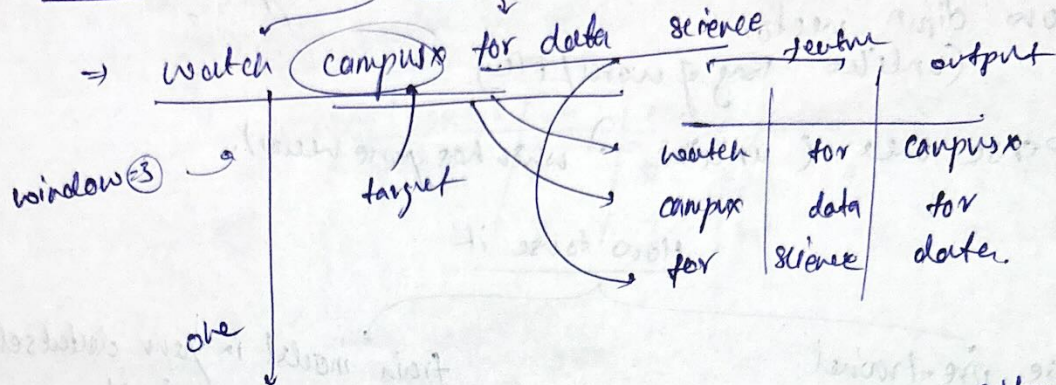 ⇒ watch campusx for data science
feature output
window = 3
target
watch for campusx
campux data for
for science data.
ohe